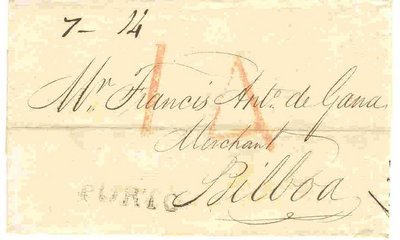 7- 14
14
Mr. Francis Anto. de Gana
Merchant
Bilboa
PORTO